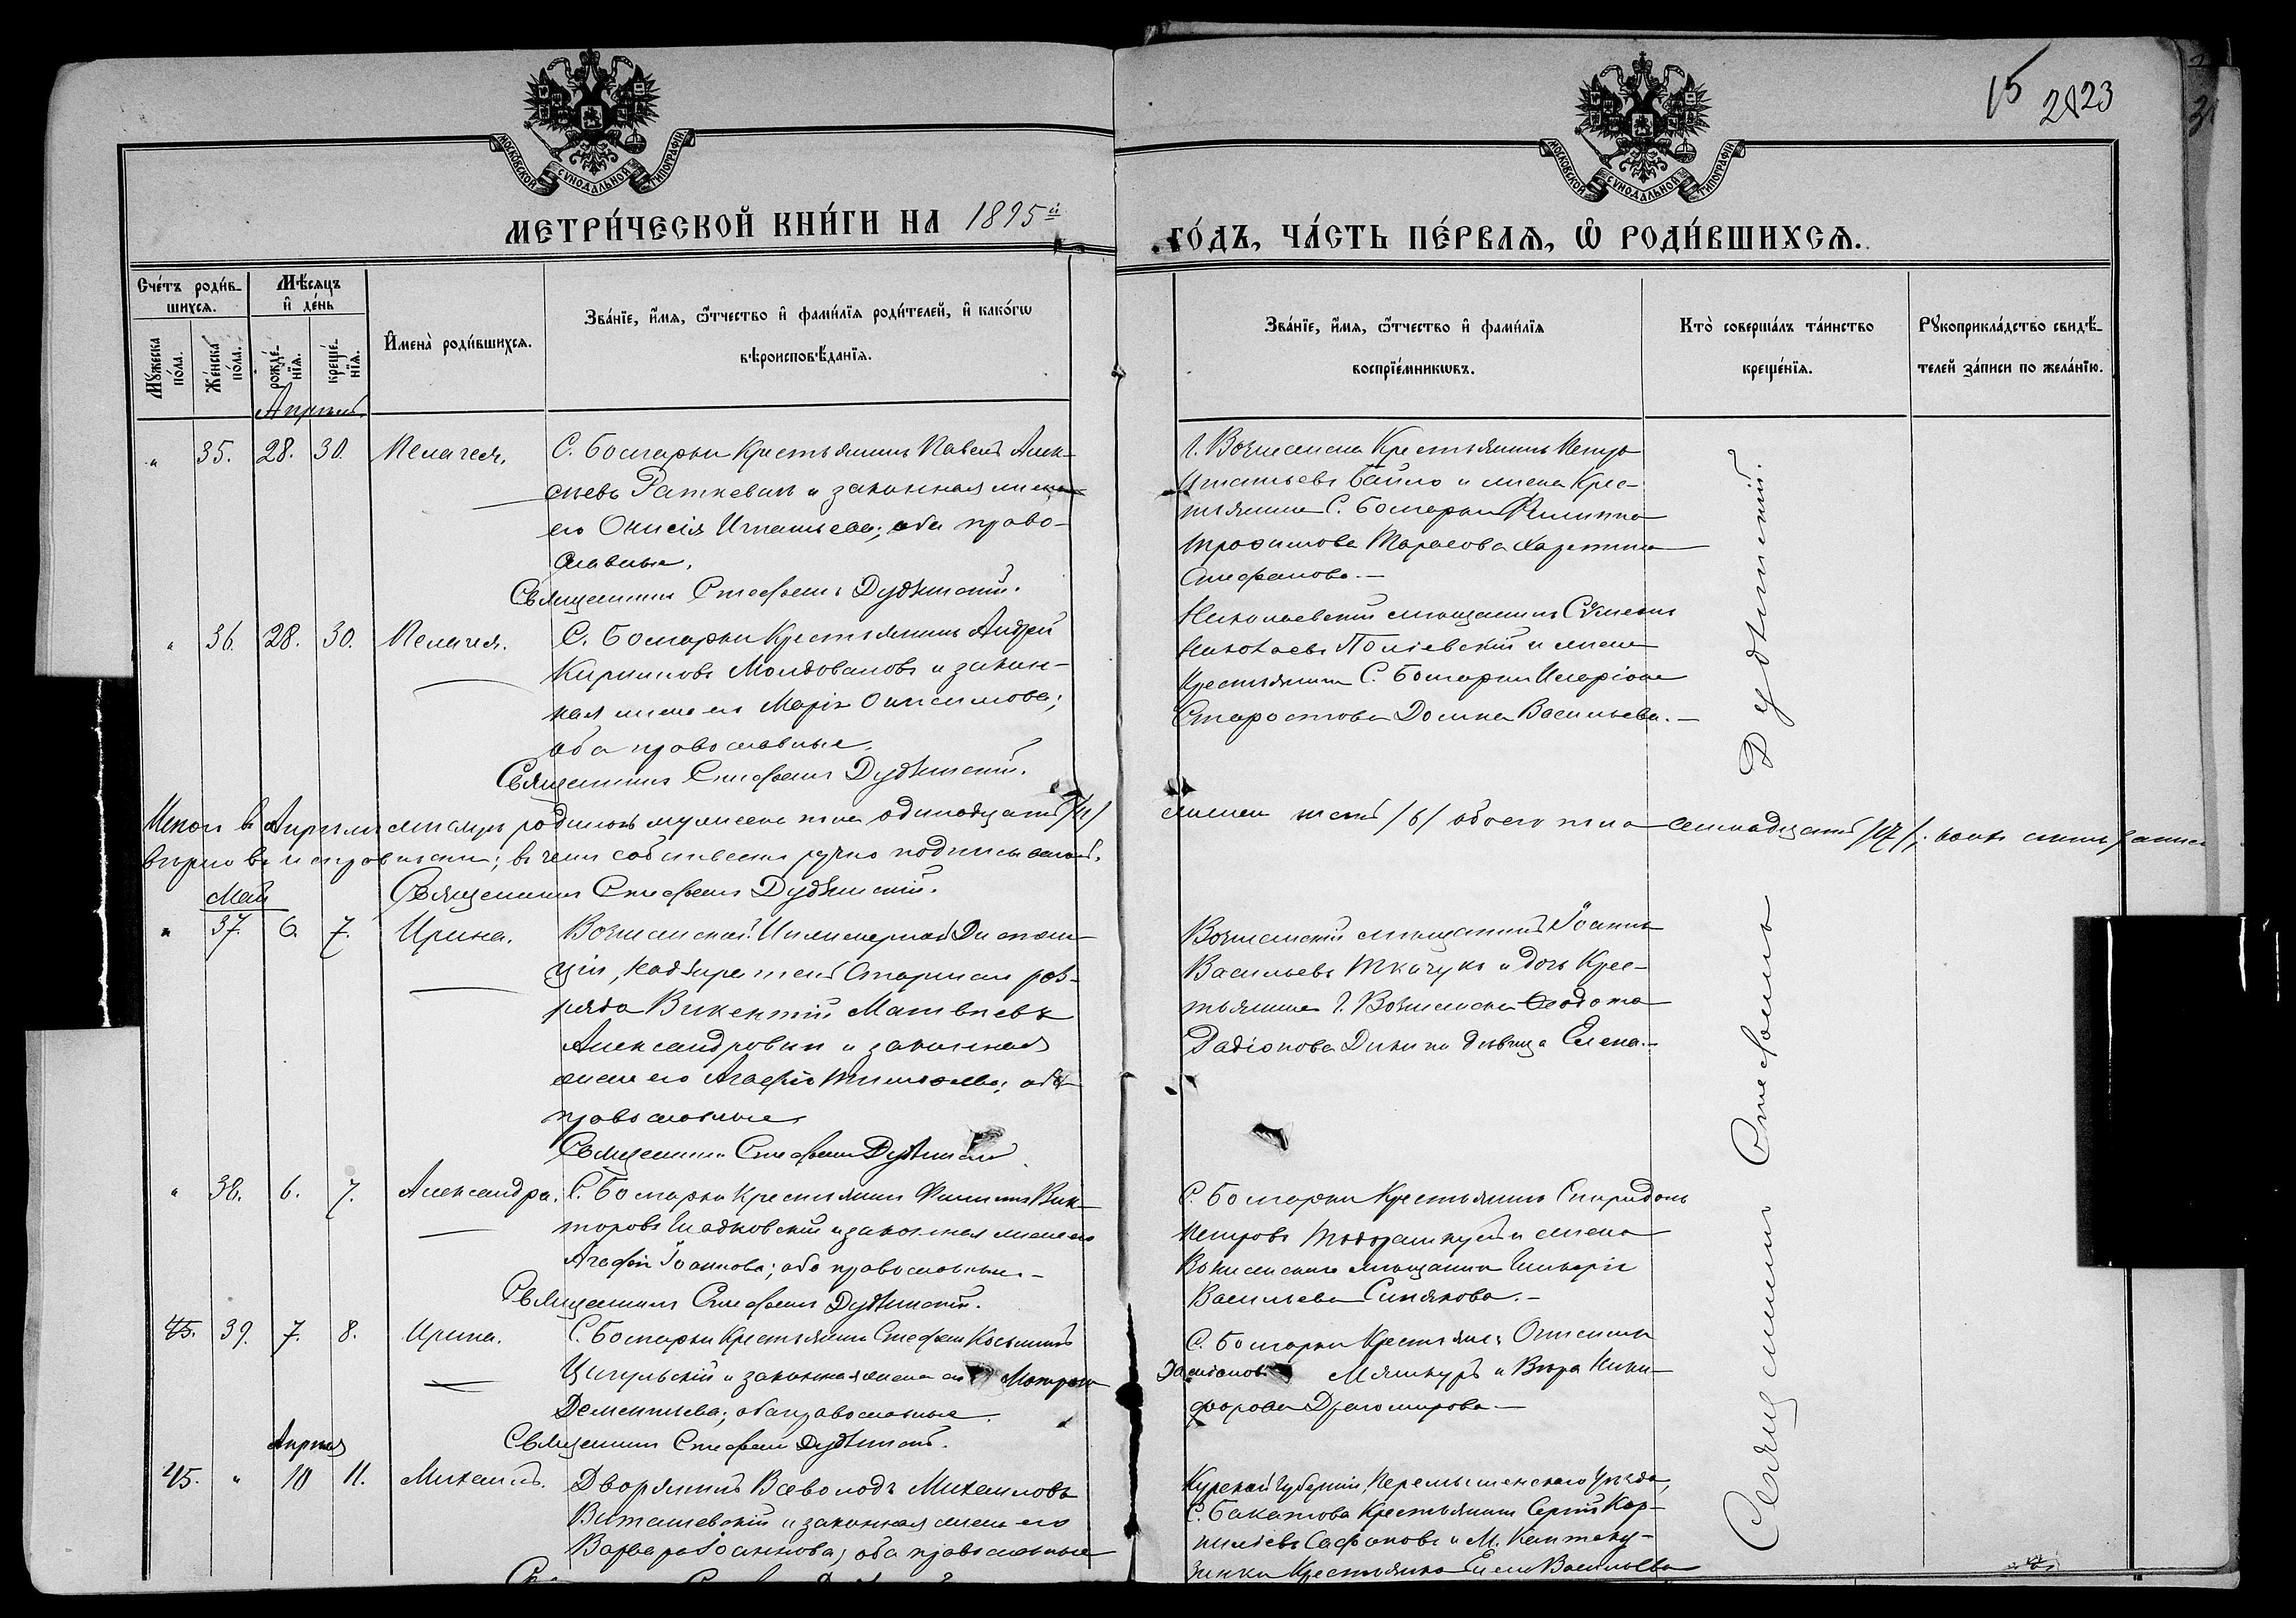 15 23
МОСКОВСКОЙ СѴНОДАЛЬНОЙ ТИПОГРАФІИ
МОСКОВСКОЙ СѴНОДАЛЬНОЙ ТИПОГРАФІИ
МЕТРИ́ЧЕСКОЙ КНИ́ГИ НА 1895й
ГО́ДЪ, ЧА́СТЬ ПЕ́РВАѦ, Ѽ РОДИ́ВШИХСѦ.
Сче́тъ роди́в-
шихсѧ.
Мꙋ́жеска по́ла.
Же́нска по́ла.
Мѣ́сѧцъ
и҆ де́нь
рожде́-нїѧ.
креще́-нїѧ.
И҆мена̀ роди́вшихсѧ.
Зва́нїе, и҆́мѧ, ѻ҆́тчество и҆ фами́лїѧ роди́телей, и҆ како́гѡ
вѣроисповѣ́данїѧ.
Зва́нїе, и҆́мѧ, ѻ҆́тчество и҆ фами́лїѧ
воспрїе́мникѡвъ.
Кто̀ соверша́лъ та́инство
креще́нїѧ.
Рꙋкоприкла́дство свидѣ́-
телей за́писи по жела́нїю.
Апрель.
" 35. 28. 30. Пелагея.
С. Болгарки Крестьянинъ Павелъ Алек-
сѣевъ Раткевичъ и законная жена
его Онисія Игнатьева; оба право-
славные.
Священникъ Стефанъ
Г. Вознесенска Крестьянинъ Петръ
Игнатьевъ Байло и жена Крес-
тьянина С. Болгарки Филиппа
Трофимова Тарасова Харитина
Стефанова.—
" 36. 28. 30. Пелагея.
С. Болгарки Крестьянинъ Андрей
Кирилловъ Молдовановъ и закон-
ная жена его Марія Онисимова;
оба православные.
Священникъ Стефанъ
Николаевскій мещанинъ Сѵмеонъ
Николаевъ и жена
Крестьянина С. Болгарки Иларіона
Старостова Домна Васильева.—
Итого въ Апрелѣ мѣсяцѣ родилось мужеска пола одинадцать /11/
женска шесть /6/ обоего пола семнадцать /17/;
вѣрно въ исправности; въ чемъ собственноручно подписываюсь.
Священникъ Стефанъ
Май
" 37. 6. 7. Ирина.
Вознесенской Инженерной Дистан-
ціи, кадзиратель старшаго раз-
ряда Викентій Матвѣевъ
Александровичъ и законная
жена его Агафія Тимофѣева; оба
православные
Священникъ Стефанъ
Вознесенскій мещанинъ Іоаннъ
Васильевъ Ткачукъ и дочь Крес-
тьянина Г. Вознесенска Ѳеодота
Радіонова дѣвица Елена.—
" 38. 6. 7. Александра.
С. Болгарки Крестьянинъ Филиппъ Вик-
торовъ и законная жена его
Агафія Іоаннова; оба православные.—
Священникъ Стефанъ
С. Болгарки Крестьянинъ Спиридонъ
Петровъ и жена
Вознесенскаго мещанина Гликерія
Васильева Синякова.—
39. 7. 8. Ирина.
С. Болгарки Крестьянинъ Стефанъ Косьминъ
Цигульскій и законная жена его Матрона
Дементьева; оба православные.
Священникъ Стефанъ
С. Болгарки Крестьяне: Онисимъ
и Вѣра Ники-
форова Драгомирова.—
Апреля
45. " 10 11. Михаилъ.
Дворянинъ Всеволодъ Михаиловъ
Виташевскій и законная жена его
Варвара Іоаннова; оба православные
Курской Губерніи, Уѣзда,
С. Крестьянинъ Сергій Кор-
ниліевъ Сафоновъ и М.
Крестьянка Елена Васильева
Священникъ Стефанъ